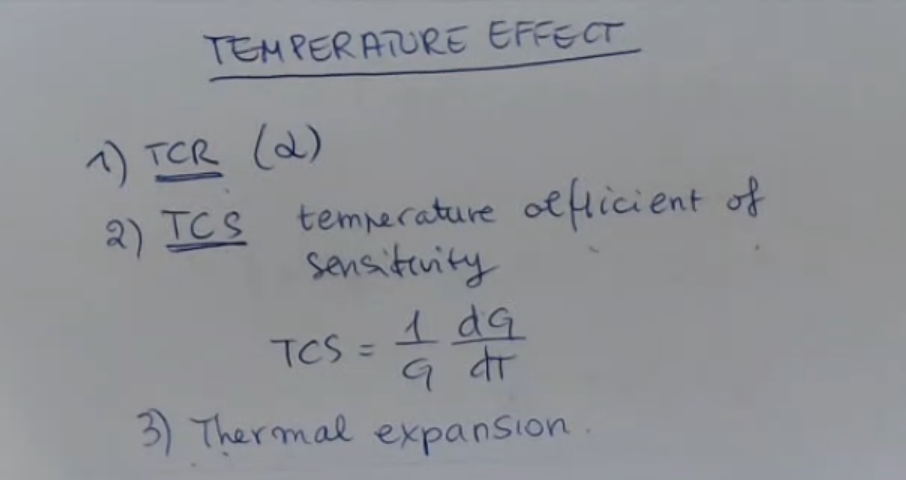 TEMPERATURE EFFECT
1) TCR (α)
2) TCS temperature cefficient of
sensitivity
TCS = 1/G dG/dT
3) Thermal expansion.